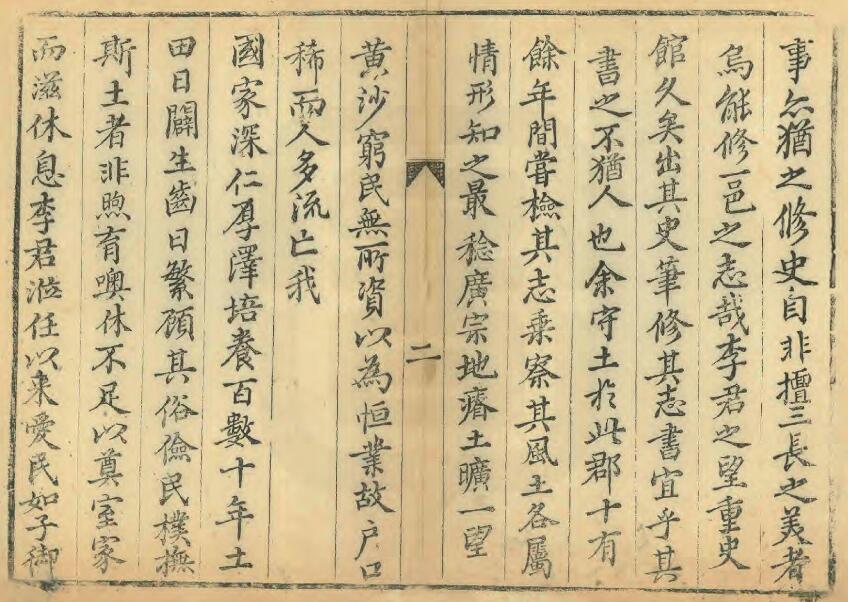 事亦猶之修史自非擅三長之美者
烏能修一邑之志哉李君之望重史
館久矣出其史筆修其志書宜乎其
書之不猶人也余守土於此郡十有
餘年間嘗檢其志乘察其風土各屬
情形知之最稔廣宗地瘠土曠一望
二
黄沙窮民無所資以為恒業故户口
稀而人多流亡我
國家深仁厚澤培養百數十年土
田日闢生齒日繁顧其俗儉民樸撫
斯土者非煦育噢休不足以奠室家
而滋休息李君涖任以来愛民如子御